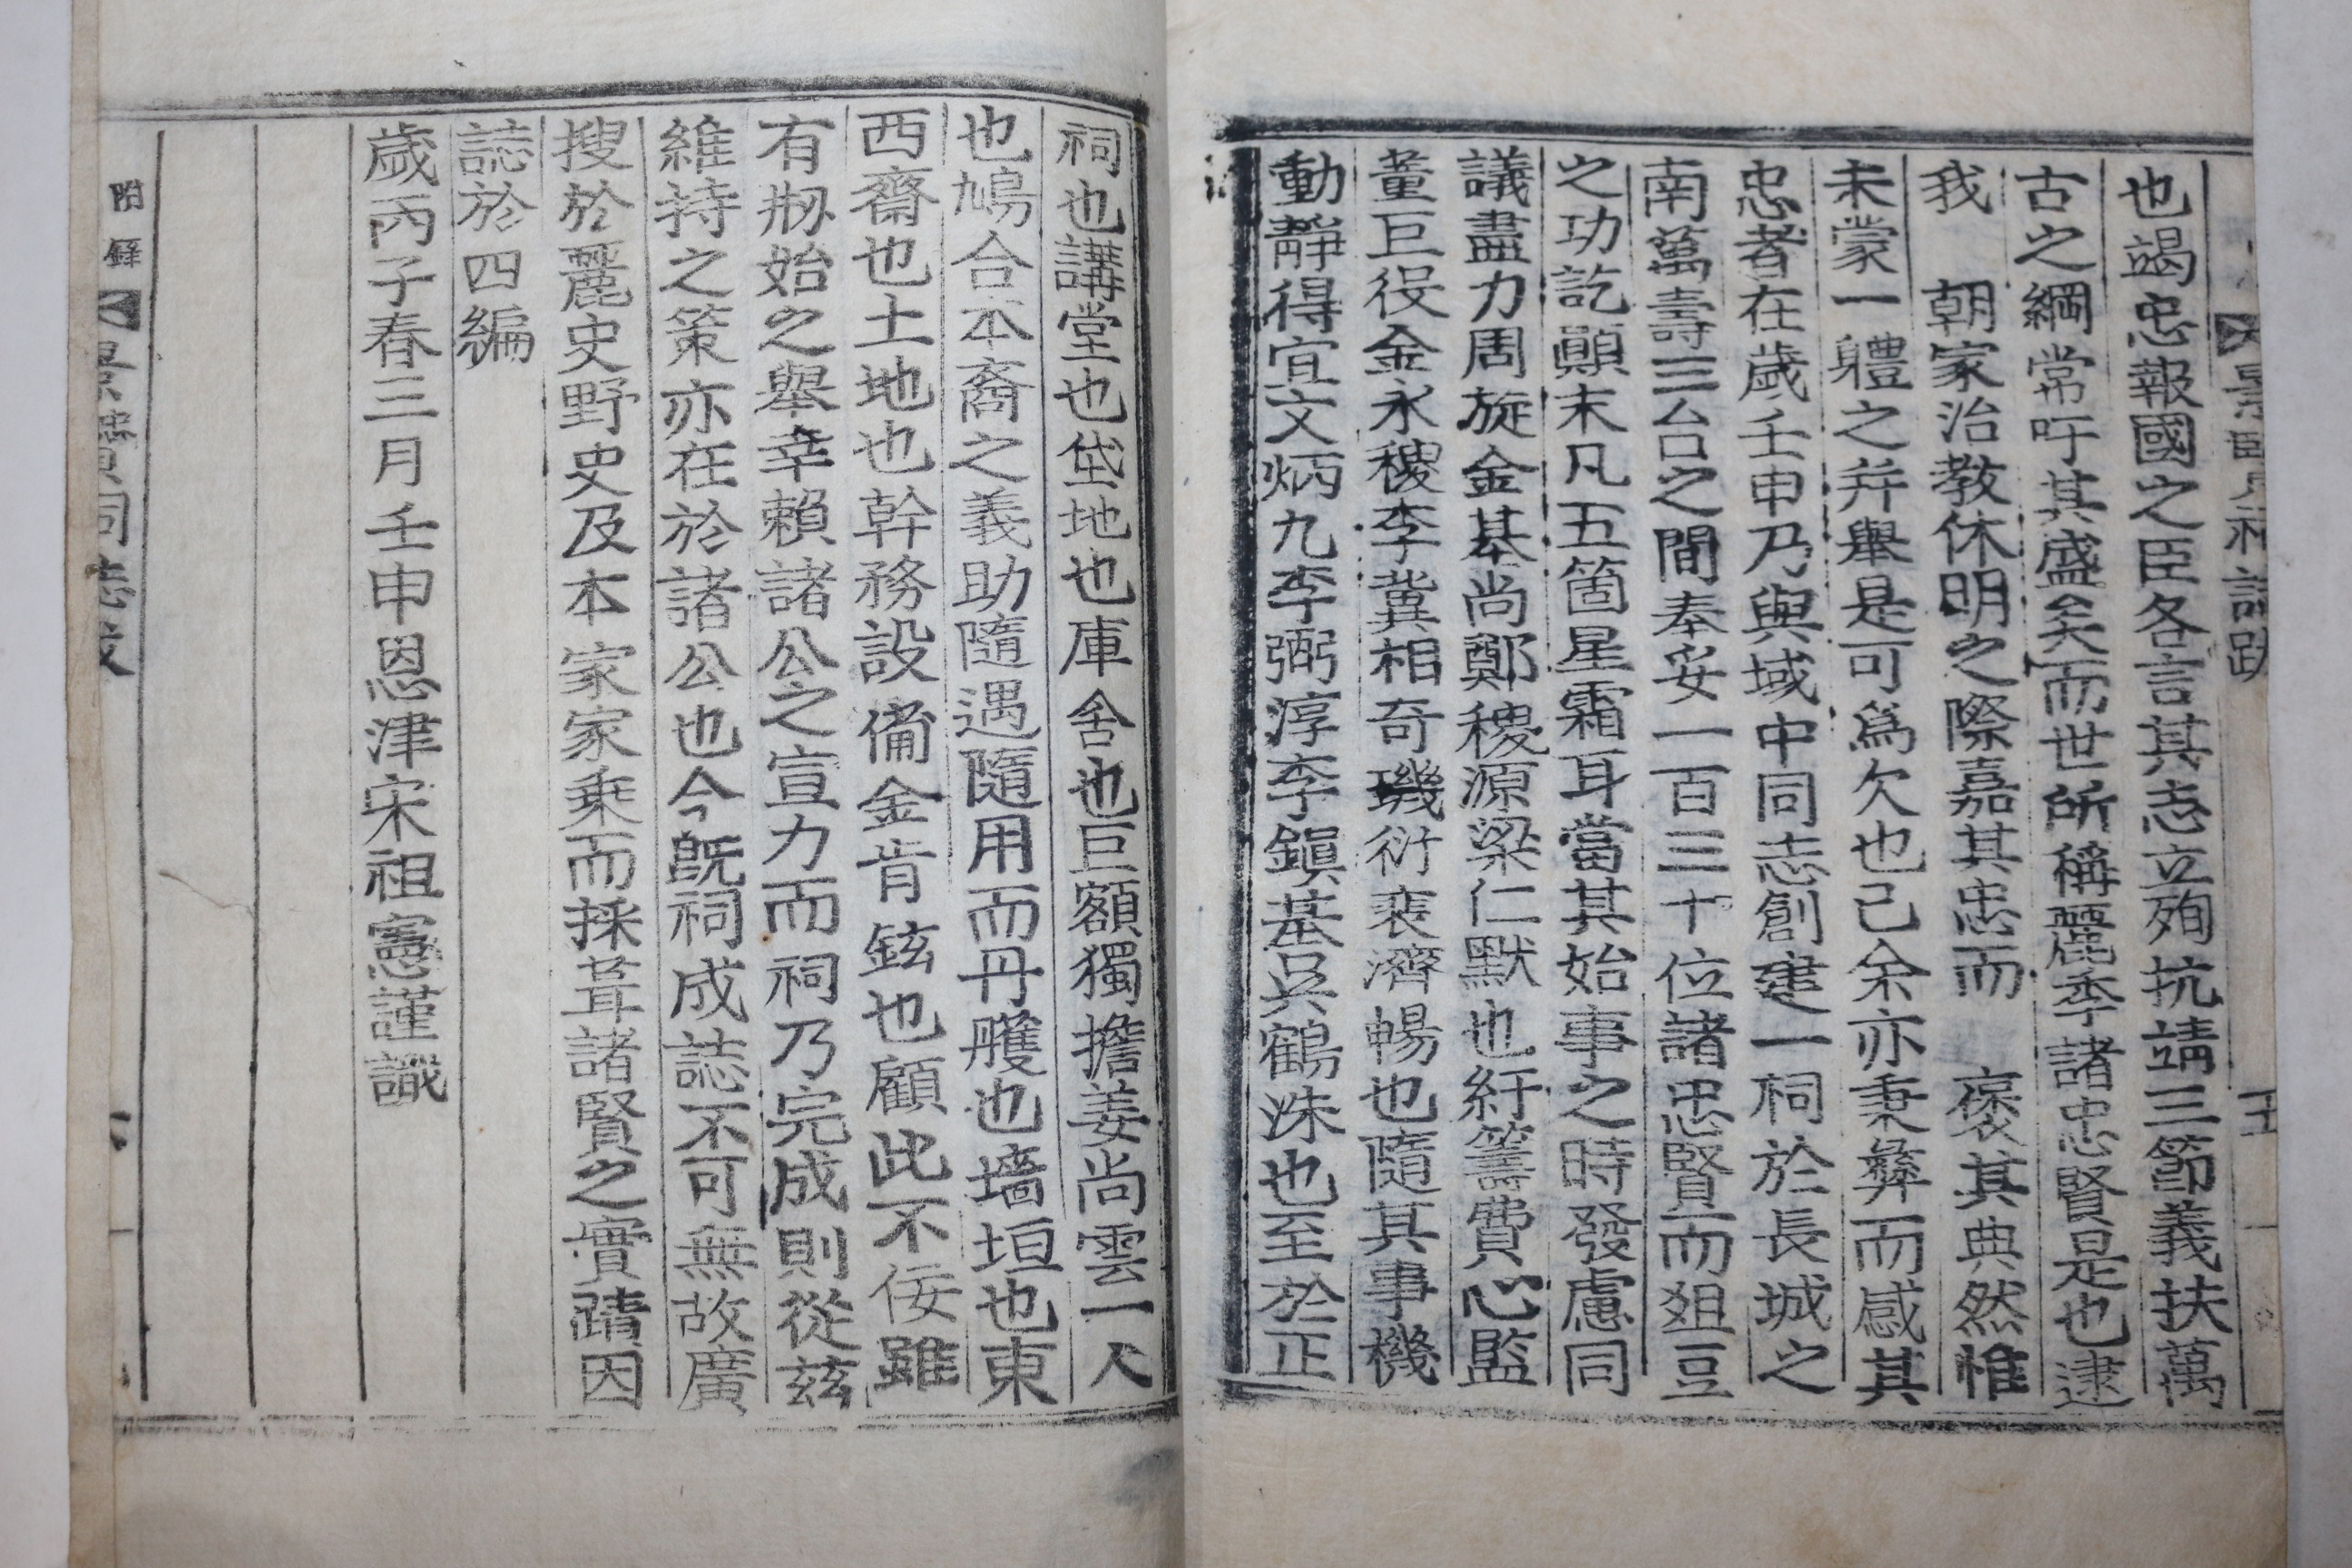 也竭忠報國之臣各言其志立殉抗靖三節義扶萬
古之綱常吁其盛矣而世所稱麗季諸忠賢是也逮
我 朝家治教休明之際嘉其忠而 褒其典然惟
未蒙一軆之并擧是可爲欠也己余亦秉彝而感其
忠者在歲壬申乃與域中同志創建一祠於長城之
南萬壽三台之間奉妥一百三十位諸忠賢而俎豆
之功訖顚末凡五箇星霜耳當其始事之時發慮同
議盡力周旋金基尚鄭稷源梁仁默也紆籌費心監
董巨役金永稷李冀相奇璣衍裵濟暢也隨其事機
動靜得宜文炳九李弼淳李鎭基吳鶴洙也至於正
祠也講堂也垈地也庫舍也巨額獨擔姜尚雲一人
也鳩合本裔之義助隨遇隨用而丹雘也墻垣也東
西齋也土地也幹務設備金肯鉉也顧此不侫雖
有刱始之擧幸賴諸公之宣力而祠乃完成則從玆
維持之策亦在於諸公也今旣祠成誌不可無故廣
搜於麗史野史及本家家乗而採葺諸賢之實蹟因
誌於四編
歲丙子春三月壬申恩津宋祖憲謹識
附錄